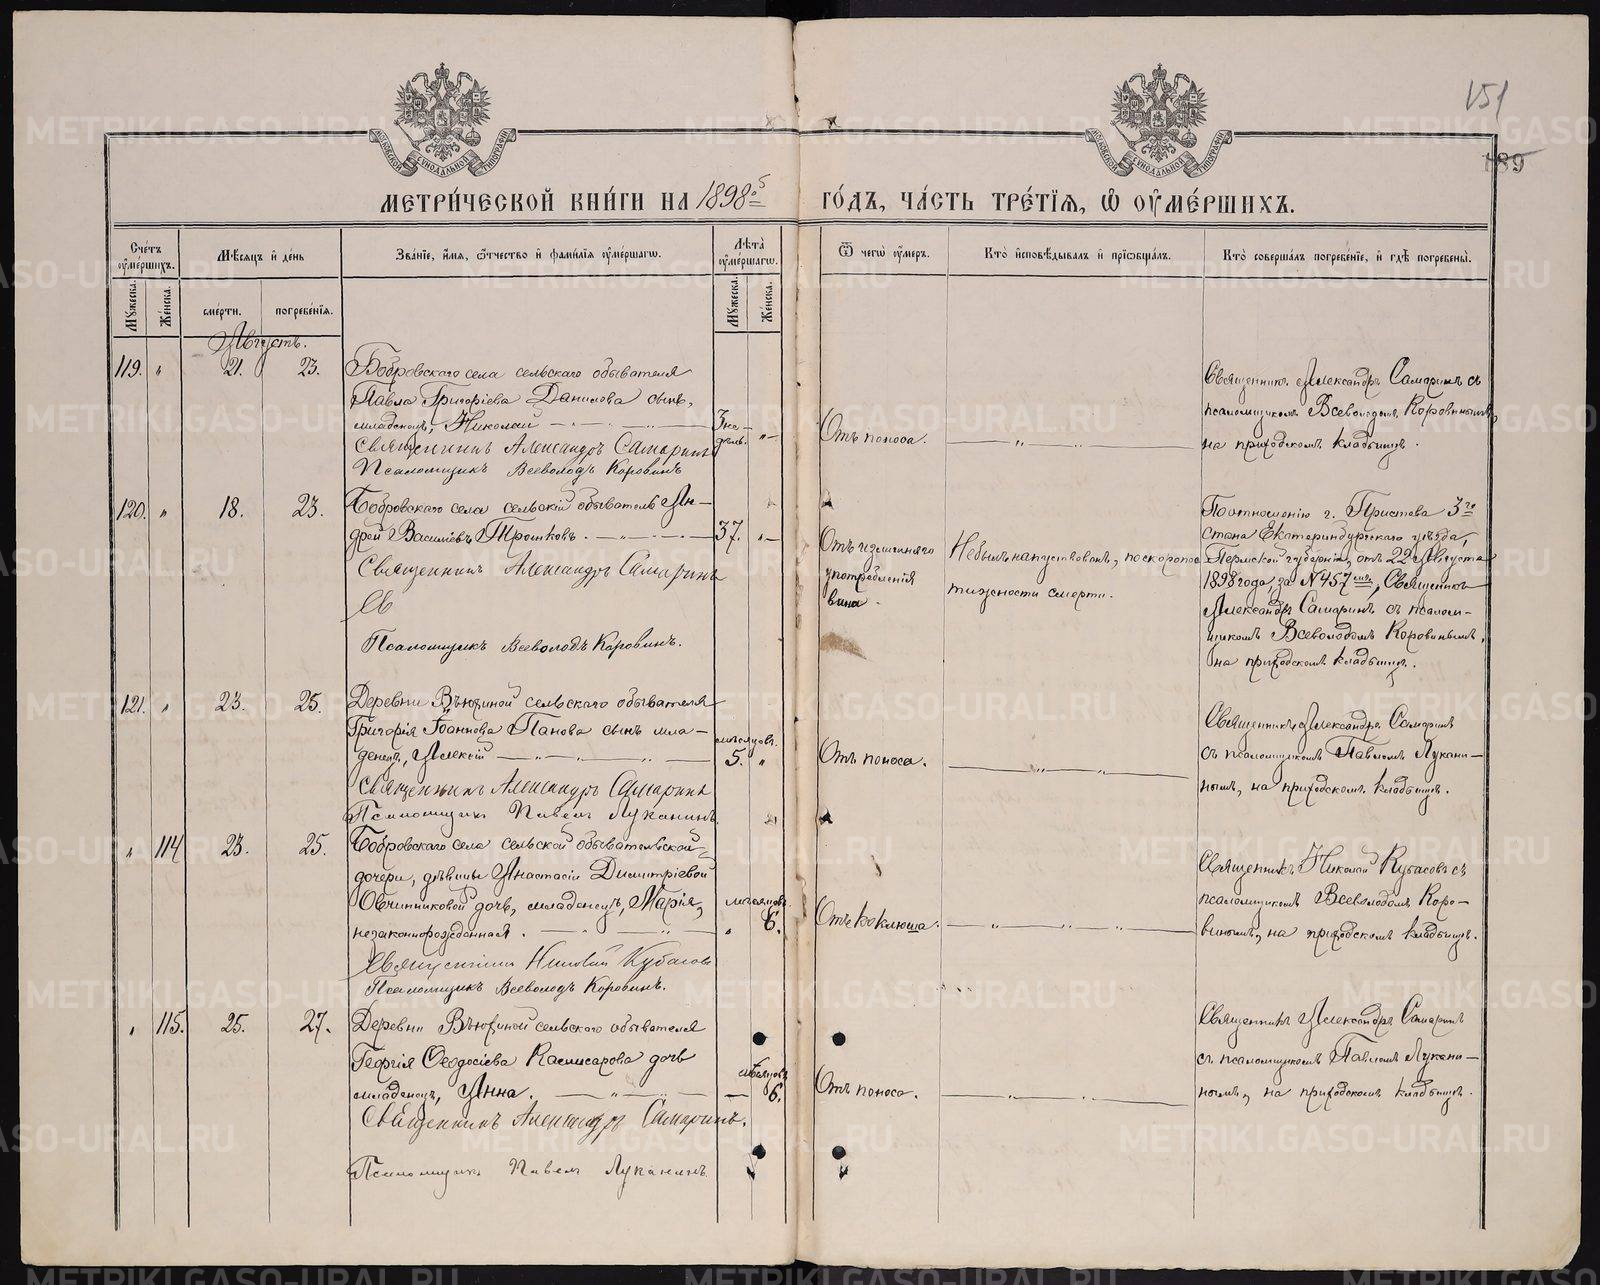 151
189
МОСКОВСКОЙ СѴНОДАЛЬНОЙ ТИПОГРАФІИ
МОСКОВСКОЙ СѴНОДАЛЬНОЙ ТИПОГРАФІИ
МЕТРИ́ЧЕСКОЙ КНИ́ГИ НА 1898й ГО́ДЪ, ЧА́СТЬ ТРЕ́ТІѦ, Ѡ ОУ҆МЕ́РШИХЪ.
Сче́тъ оу҆ме́ршихъ.
Мѣ́сяцъ и҆ де́нь
Зва́ніе, и҆́мя, ѻ҆́тчество и҆ фами́лія оу҆ме́ршагѡ.
Лѣта̀ оу҆ме́ршагѡ.
Ѿ чегѡ̀ оу҆́меръ.
Кто̀ и҆сповѣ́дывалъ и҆ прїѡбща́лъ.
Кто̀ соверша́лъ погребе́ніе, и҆ гдѣ̀ погребены̀.
Му́жеска.
Же́нска.
сме́рти.
погребе́нія.
Му́жеска.
Же́нска.
Августъ.
119. " 21. 23.
Бобровскаго села сельскаго обывателя
Павла Григоріева Данилова сынъ,
младенецъ, Николай
Священникъ Александръ Самаринъ
Псаломщикъ Всеволодъ Коровинъ
3 недѣль.
Отъ поноса.
Священникъ Александръ Самаринъ съ
псаломщикомъ Всеволодомъ Коровинымъ,
на приходскомъ кладбищѣ.
120. " 18. 23.
Бобровскаго села сельскій обыватель Ан-
дрей Василіевъ Трошковъ.
Священникъ Александръ Самаринъ
Св
Псаломщикъ Всеволодъ Коровинъ.
37.
Отъ излишняго
употребленія
вина.
Не былъ напутствованъ, по скоропос
тижности смерти.
По отношенію г. Пристава 3го
стана Екатеринбургскаго уѣзда,
Пермской губерніи, отъ 22 Августа
1898 года, за № 457мъ, Священникъ
Александръ Самаринъ съ псалом-
щикомъ Всеволодомъ Коровинымъ,
на приходскомъ кладбищѣ.
121. " 23. 25.
Деревни Вьюхиной сельскаго обывателя
Григорія Іоаннова Панова сынъ мла-
денецъ, Алексій
Священникъ Александръ Самаринъ
Псаломщикъ Павелъ Луканинъ
мѣсяцовъ.
5. "
Отъ поноса.
Священникъ Александръ Самаринъ
съ псаломщикомъ Павломъ Лукани-
нымъ, на приходскомъ кладбищѣ.
" 114 23. 25.
Бобровскаго села сельской обывательской
дочери, дѣвицы Анастасіи Димитріевой
Овчинниковой дочь, младенецъ, Марія,
незаконнорожденная.
Священникъ Николай Кубасовъ
Псаломщикъ Всеволодъ Коровинъ.
мѣсяцовъ
" 6.
Отъ коклюша.
Священникъ Николай Кубасовъ съ
псаломщикомъ Всеволодомъ Коро-
винымъ, на приходскомъ кладбищѣ.
" 115. 25. 27.
Деревни Вьюхиной сельскаго обывателя
Георгія Ѳеодосіева дочь
младенецъ, Анна.
Священникъ Александръ Самаринъ.
Псаломщикъ Павелъ Луканинъ
мѣсяцовъ
6.
Отъ поноса.
Священникъ Александръ Самаринъ
съ псаломщикомъ Павломъ Лукани-
нымъ, на приходскомъ кладбищѣ.
METRIKI.GASO-URAL.RU